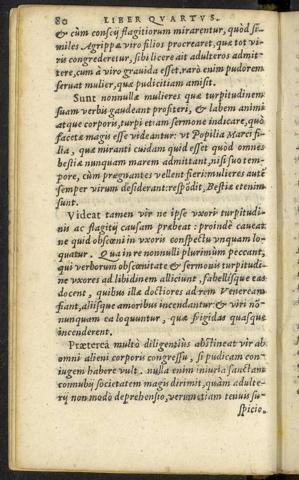 80 LIBER QVARTVS.
& cùm conscij flagitiorum mirarentur, quòd si-
miles Agrippæ viro filios procrearet, quæ tot vi-
ris congrederetur, sibi licere ait adulteros admit-
tere, cum à viro grauida esset, rarò enim pudorem
seruat mulier, quæ pudicitiam amisit.
Sunt nonnullæ mulieres quæ turpitudinem
suam verbis gaudeant profiteri, & labem animi
atque corporis, turpi etiam sermone indicare, quò
facetæ magis esse videantur: vt Popilia Marci fi-
lia, quæ miranti cuidam quid esset quòd omnes
bestiæ nunquam marem admittant, nisi suo tem-
pore, cùm prægnantes vellent fieri: mulieres autē
semper virum desiderant: respōdit, Bestiæ etenim
sunt.
Videat tamen vir ne ipse vxori turpitudi-
nis ac flagitij causam præbeat: proindé caueat
ne quid obscœni in vxoris conspectu vnquam lo-
quatur. Qua in re nonnulli plurimùm peccant,
qui verborum obscœnitate & sermonis turpitudi-
ne vxores ad libidinem alliciunt, fabellísque eas
docent, quibus illæ doctiores ad rem Veneream
fiant, aliísque amoribus incendantur: & viri nō-
nunquam ea loquuntur, quæ frigidas quasque
incenderent.
Præterea multò diligentiùs abstineat vir ab
omni alieni corporis congressu, si pudicam con-
iugem habere vult. nulla enim iniuria sanctam
connubij societatem magis dirimit, quàm adulte-
rij non modò deprehensio, verum etiam tenuis su-
spicio.